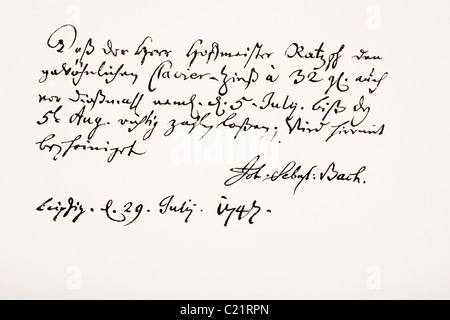 Daß der Herr Hoffmeister Ratzpf den
gewöhnlichen Clavier-Zinß à 32 gl. auch
vor dießmahl neml. d. 5. July. biß d.
5t Aug. richtig zahlen laßen; Wird hiermit
bescheiniget
Joh: Sebast: Bach.
Leipzig. d. 29. July. 1747.
alamy
alamy
Image ID: C21RPN
www.alamy.com